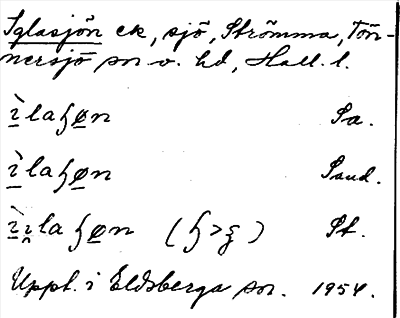 Iglasjön ek, sjö, Strömma, Tön-
nersjö sn v. hd, Hall. l.
ı̀laɧøn Sa.
ı̀laɧøn Sand.
ı̀ı̯laɧøn (ɧ>ʒ) St.
Uppt. i Eldsberga sn. 1954.